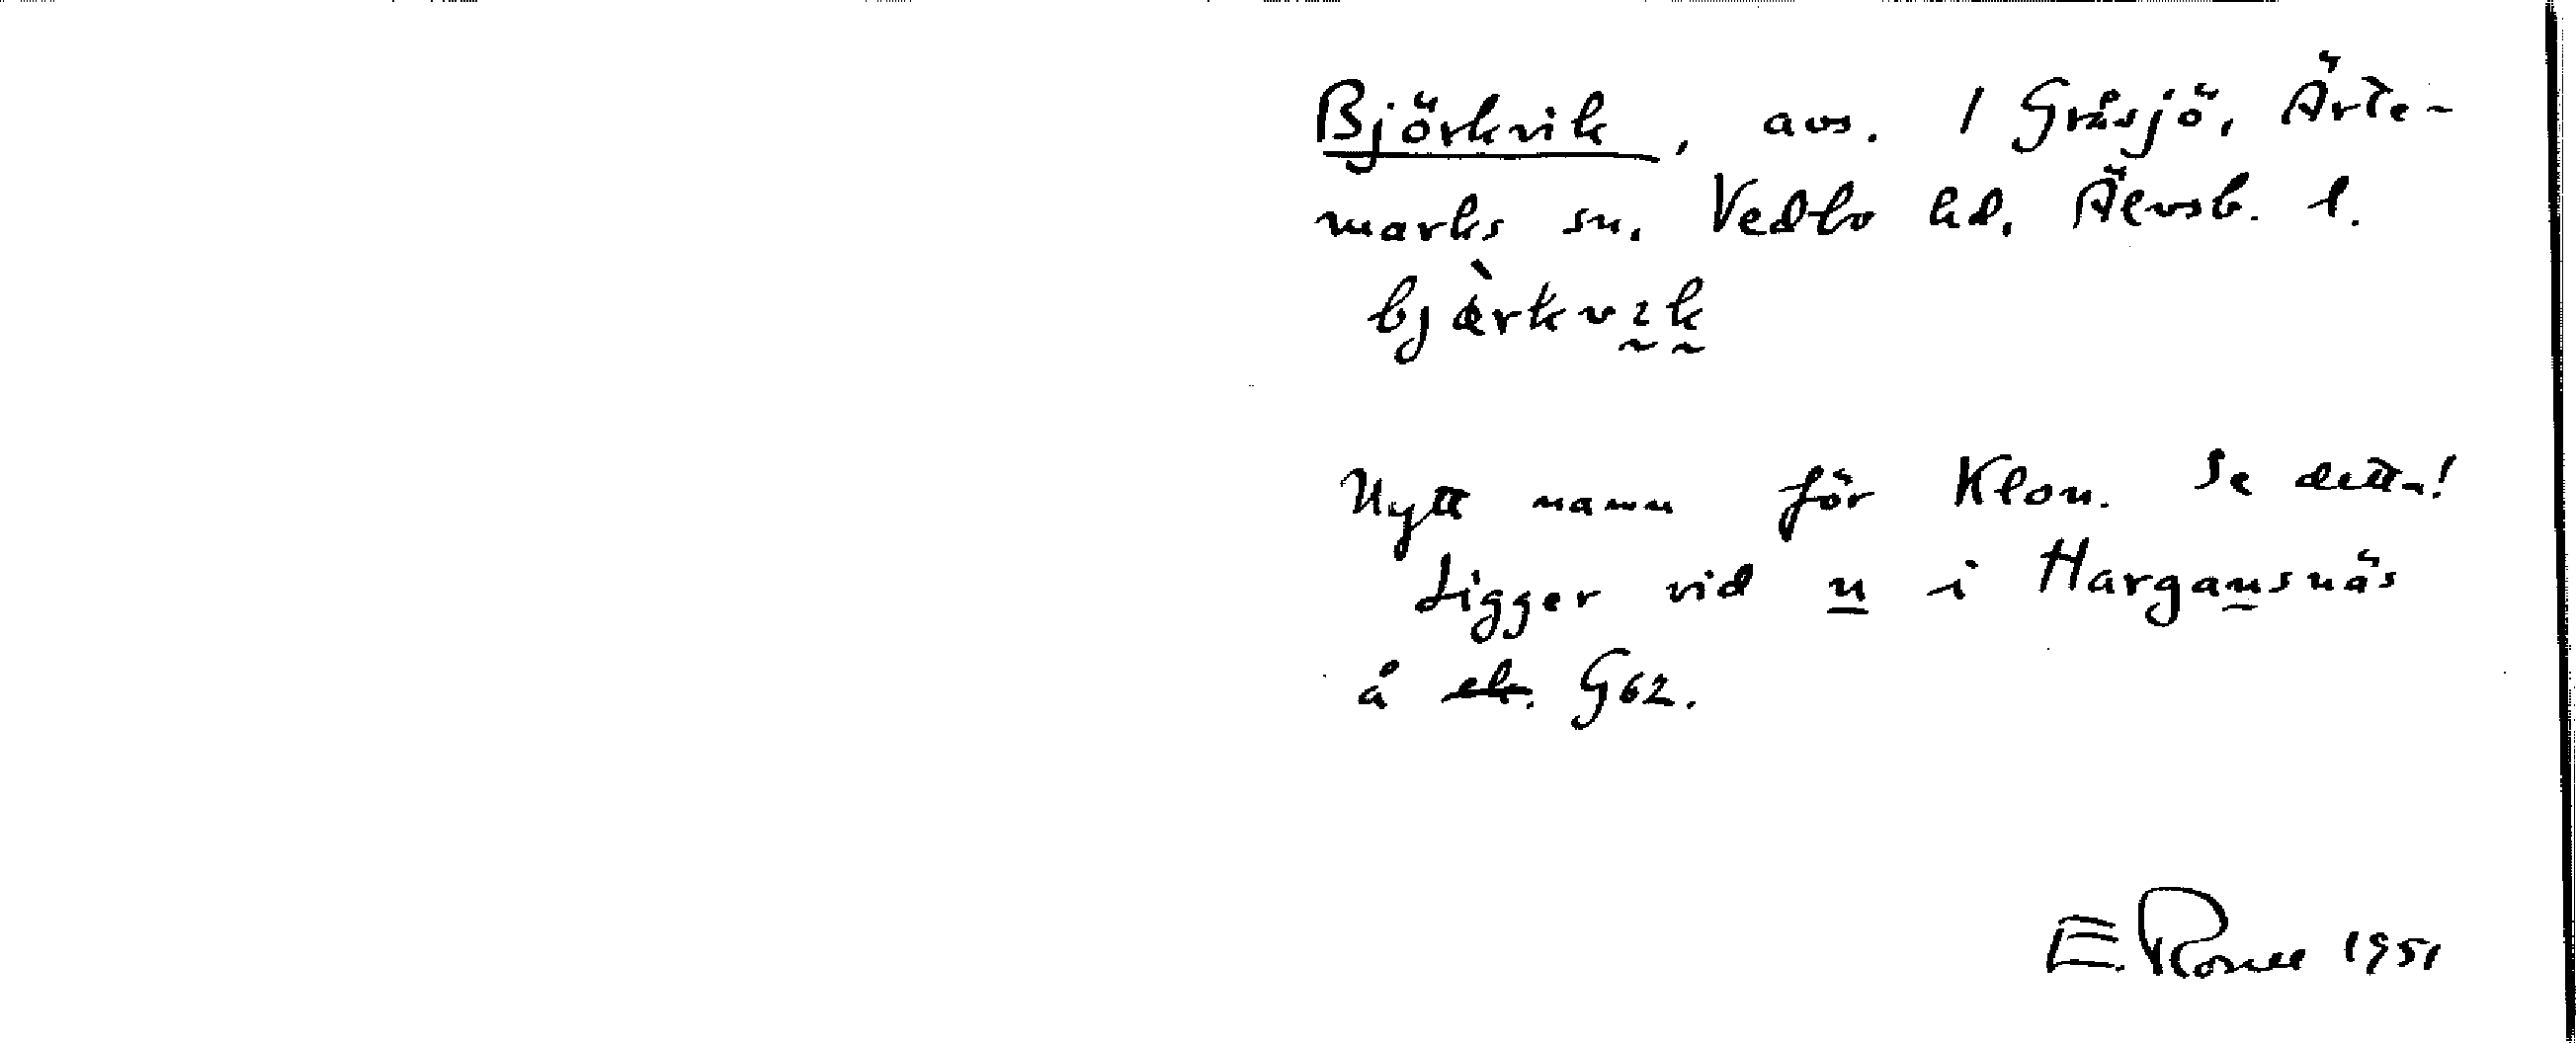 Björkvik, avs. 1 Gråsjö, Ärte-
marks sn. Vedbo hd. Älvsb. l.
bjæ̀rkvık
Nytt namn för Klon. Se detta!
Ligger vid n i Hargansnäs
å ek. G62.
E. Rosell 1951